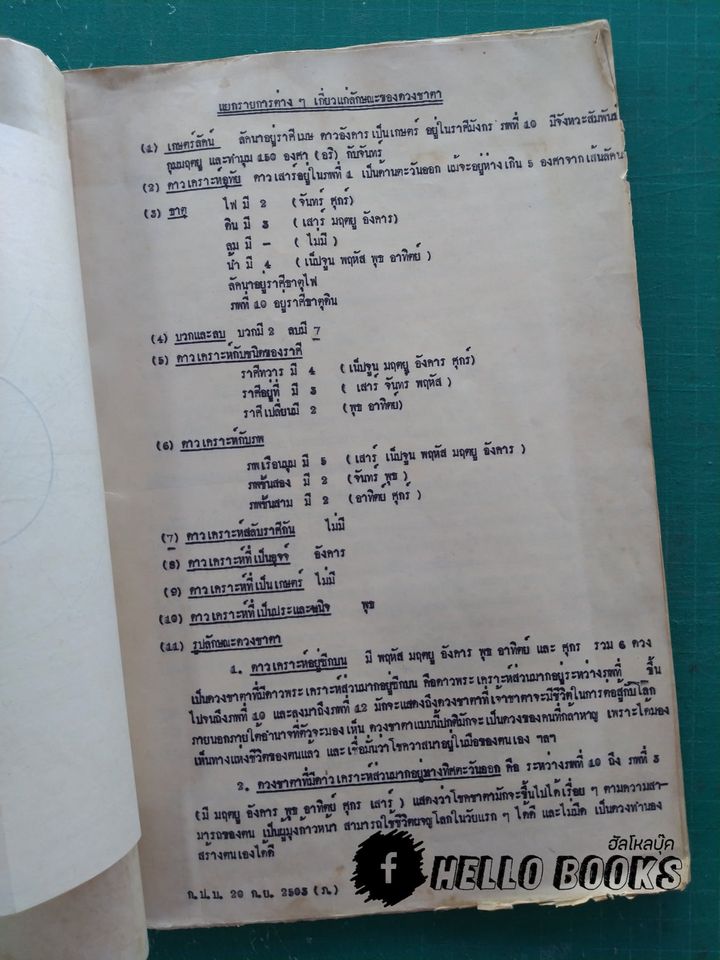 แยกรายการต่าง ๆ เกี่ยวแก่ลักษณะของดวงชาตา
(1) เกษตร์ลัคน์ ลัคนาอยู่ราศีเมษ ดาวอังคารเป็นเกษตร์ อยู่ในราศีมังกร ภพที่ 10 มีจังหวะสัมพันธ์
กุมมฤตยู และทำมุม 150 องศา (อริ) กับจันทร์
(2) ดาวเคราะห์อุทัย ดาวเสาร์อยู่ในภพที่ 1 เป็นด้านตะวันออก แม้จะอยู่ห่างเกิน 5 องศาจากเส้นลัคนา
(3) ธาตุ ไฟ มี 2 (จันทร์ ศุกร์)
ดิน มี 3 (เสาร์ มฤตยู อังคาร)
ลม มี - (ไม่มี)
น้ำ มี 4 (เน็ปจูน พฤหัส พุธ อาทิตย์)
ลัคนาอยู่ราศีธาตุไฟ
ภพที่ 10 อยู่ราศีธาตุดิน
(4) บวกและลบ บวกมี 2 ลบมี 7
(5) ดาวเคราะห์กับชนิดของราศี
ราศีทวาร มี 4 (เน็ปจูน มฤตยู อังคาร ศุกร์)
ราศีอยู่ที่ มี 3 (เสาร์ จันทร พฤหัส)
ราศีเปลี่ยนมี 2 (พุธ อาทิตย์)
(6) ดาวเคราะห์กับภพ
ภพเรือนมุม มี 5 (เสาร์ เน็ปจูน พฤหัส มฤตยู อังคาร)
ภพชั้นสอง มี 2 (จันทร์ พุธ)
ภพชั้นสาม มี 2 (อาทิตย์ ศุกร์)
(7) ดาวเคราะห์สลับราศีกัน ไม่มี
(8) ดาวเคราะห์ที่เป็นอุจจ์ อังคาร
(9) ดาวเคราะห์ที่เป็นเกษตร์ ไม่มี
(10) ดาวเคราะห์ที่เป็นประและนิจ พุธ
(11) รูปลักษณะดวงชาตา
1. ดาวเคราะห์อยู่ซีกบน มี พฤหัส มฤตยู อังคาร พุธ อาทิตย์ และ ศุกร รวม 6 ดวง
เป็นดวงชาตาที่มีดาวพระเคราะห์ส่วนมากอยู่ซีกบน คือดาวพระเคราะห์ส่วนมากอยู่ระหว่างภพที่ ขึ้น
ไปจนถึงภพที่ 10 และลงมาถึงภพที่ 12 มักจะแสดงถึงดวงชาตาที่เจ้าชาตาจะมีชีวิตในการต่อสู้กับโลก
ภายนอกภายใต้อำนาจที่ตัวจะมองเห็น ดวงชาตาแบบนี้ปกติมักจะเป็นดวงของคนที่กล้าหาญ เพราะได้มอง
เห็นทางแห่งชีวิตของตนแล้ว และเชื่อมั่นว่าโชควาสนาอยู่ในมือของตนเอง ฯลฯ
2. ดวงชาตาที่มีดาวเคราะห์ส่วนมากอยู่ทางทิศตะวันออก คือ ระหว่างภพที่ 10 ถึง ภพที่ 3
(มี มฤตยู อังคาร พุธ อาทิตย์ ศุกร เสาร์) แสดงว่าโชคชาตามักจะขึ้นไปได้เรื่อย ๆ ตามความสา-
มารถของตน เป็นผู้มุ่งก้าวหน้า สามารถใช้ชีวิตผจญโลกในวัยแรก ๆ ได้ดี และไม่มืด เป็นดวงทำนอง
สร้างตนเองได้ดี
ก.ป.บ. 20 ก.ย. 2503 (ภ.)
ฮัลโหลบุ๊ค
f HELLO BOOKS